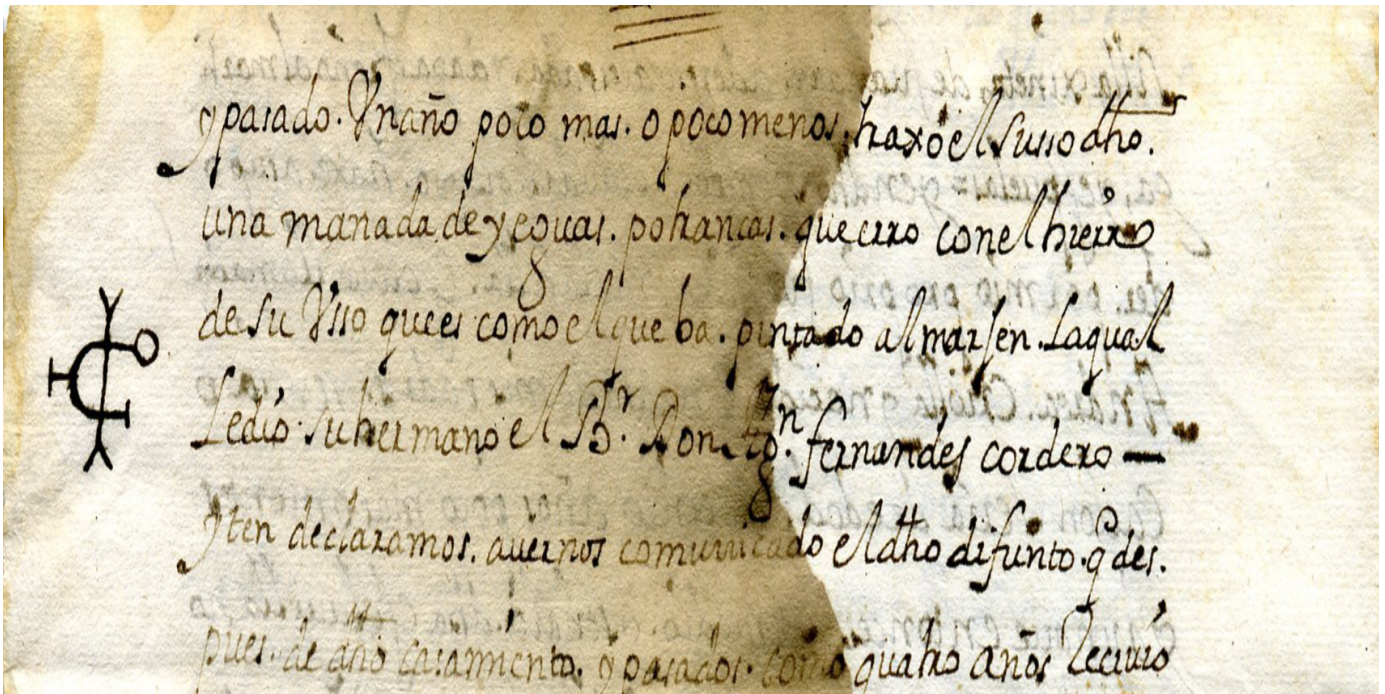 y pasado. Vn año poco mas. o poco menos. traxo el susso dho.
una manada de yeguas. potrancas. que erro con el hierro
de su Vsso que es como el que ba. pintado al marjen. La qual
Le dio. su hermano el Br. Don fernandes cordero —
yten declaramos. auernos comunicado el dho difunto. q des.
pues. de dho casamiento. y pasados. como quatro años Reciuio